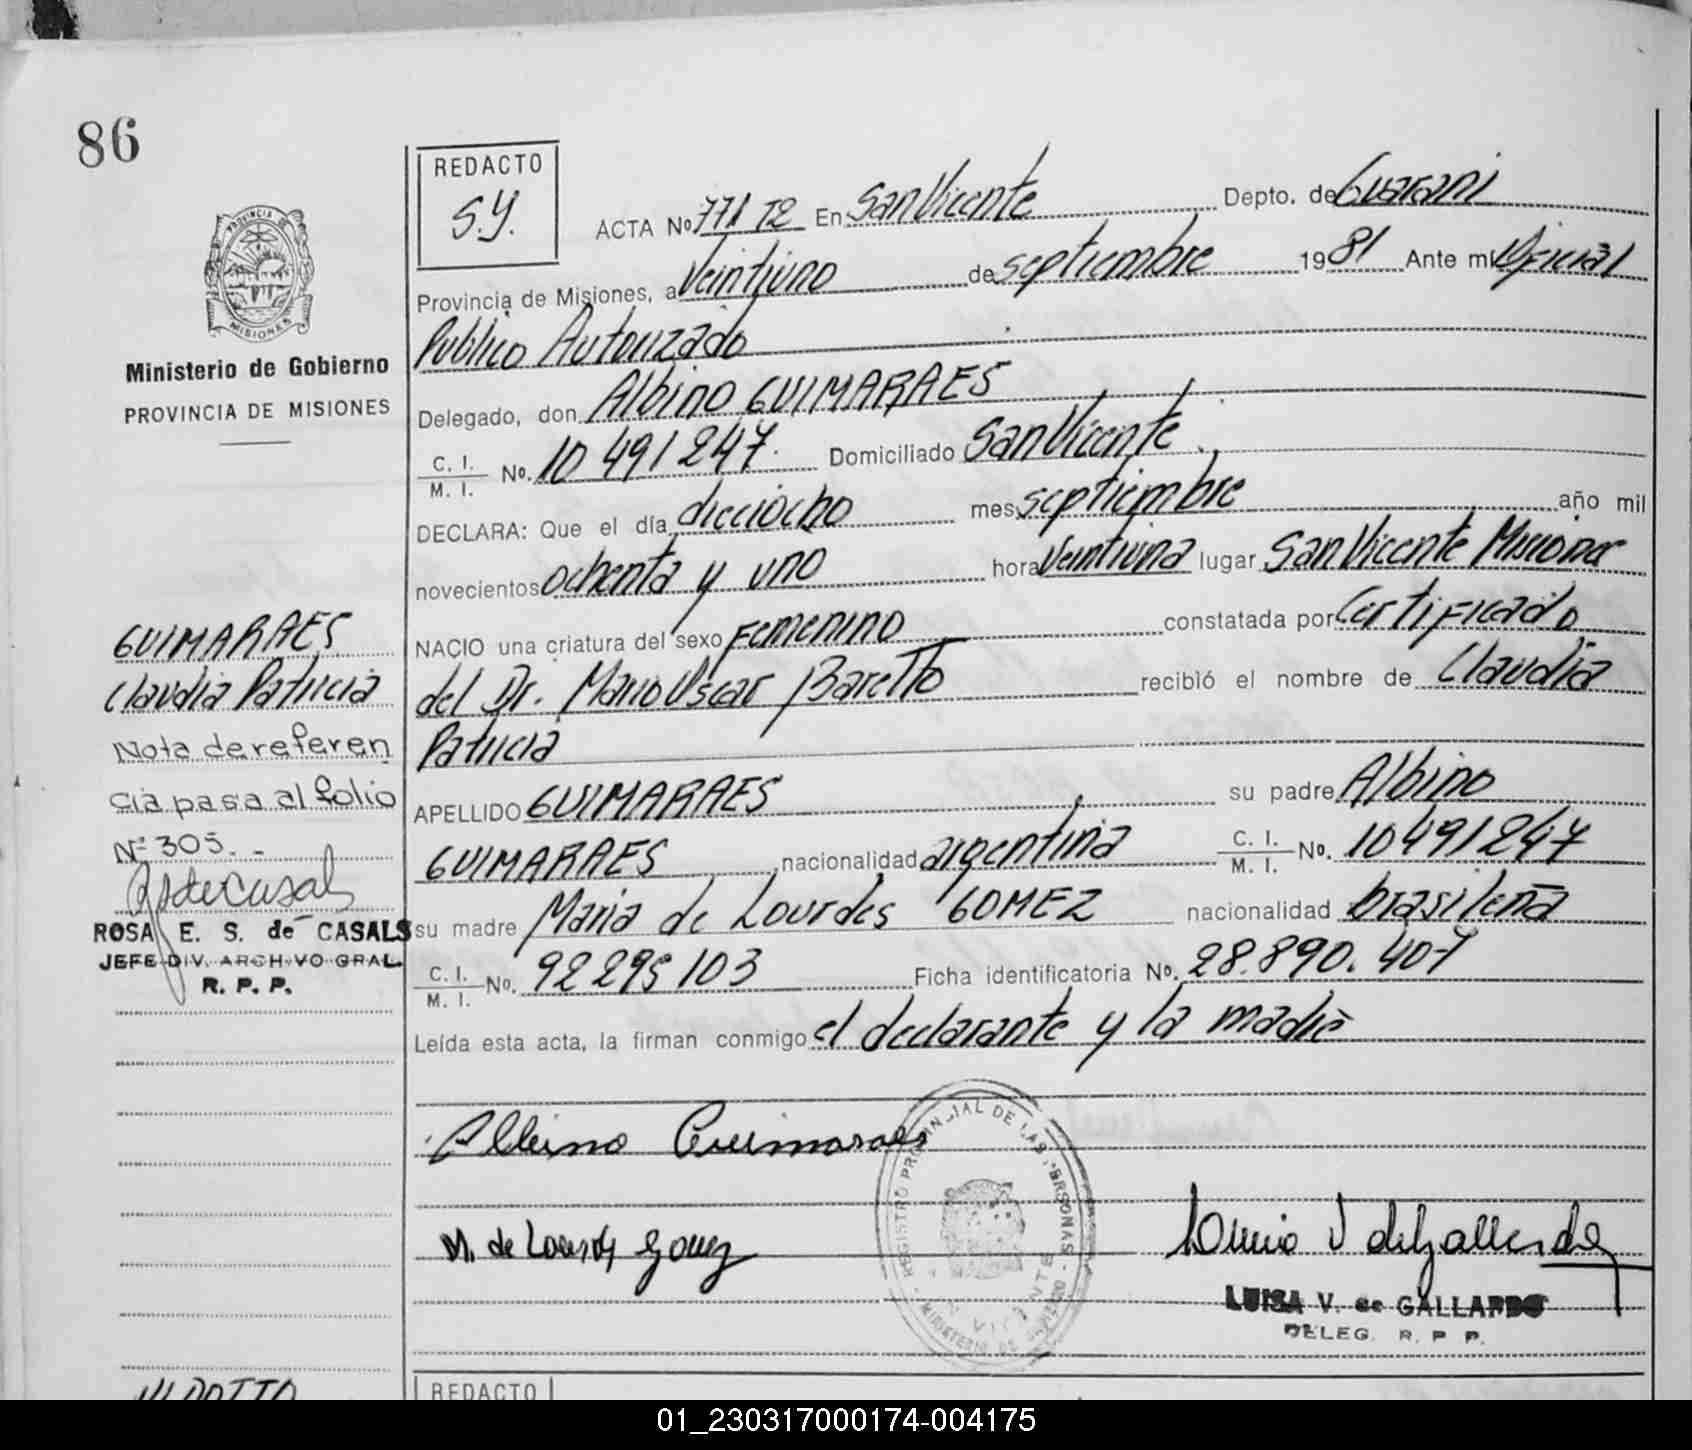 86
REDACTO
S.Y.
ACTA No 771 T2 En San Vicente Depto. de Guarani
Provincia de Misiones, a Veintiuno de septiembre 1981 Ante mi Oficial
Publico Autorizado
Delegado, don Albino GUIMARAES
C. I.
M. I. No. 10 491 247. Domiciliado San Vicente.
DECLARA: Que el día dieciocho mes septiembre año mil
novecientos ochenta y uno hora Veintiuna lugar San Vicente Misiones
NACIO una criatura del sexo Femenino constatada por Certificado
del Dr. Mario Oscar Baretto recibió el nombre de Claudia
Patricia
APELLIDO GUIMARAES su padre Albino
GUIMARAES nacionalidad argentina C. I.
M. I. No. 10491247
su madre Maria de Lourdes GOMEZ nacionalidad brasileña
C. I.
M. I. No. 92 295 103 Ficha identificatoria No. 28.890.407
Leída esta acta, la firman conmigo el declarante y la madre
Albino Guimaraes
M. de Lourdes Gomez
REGISTRO PROVINCIAL DE LAS PERSONAS
MINISTERIO DE GOBIERNO
SAN VICENTE
LUISA V. de GALLARDO
DELEG. R. P. P.
PROVINCIA DE
MISIONES
Ministerio de Gobierno
PROVINCIA DE MISIONES
GUIMARAES
Claudia Patricia
Nota de referen
cia pasa al folio
Nº 305. -
ROSA E. S. de CASALS
JEFE DIV. ARCHIVO GRAL.
R. P. P.
REDACTO
01_230317000174-004175